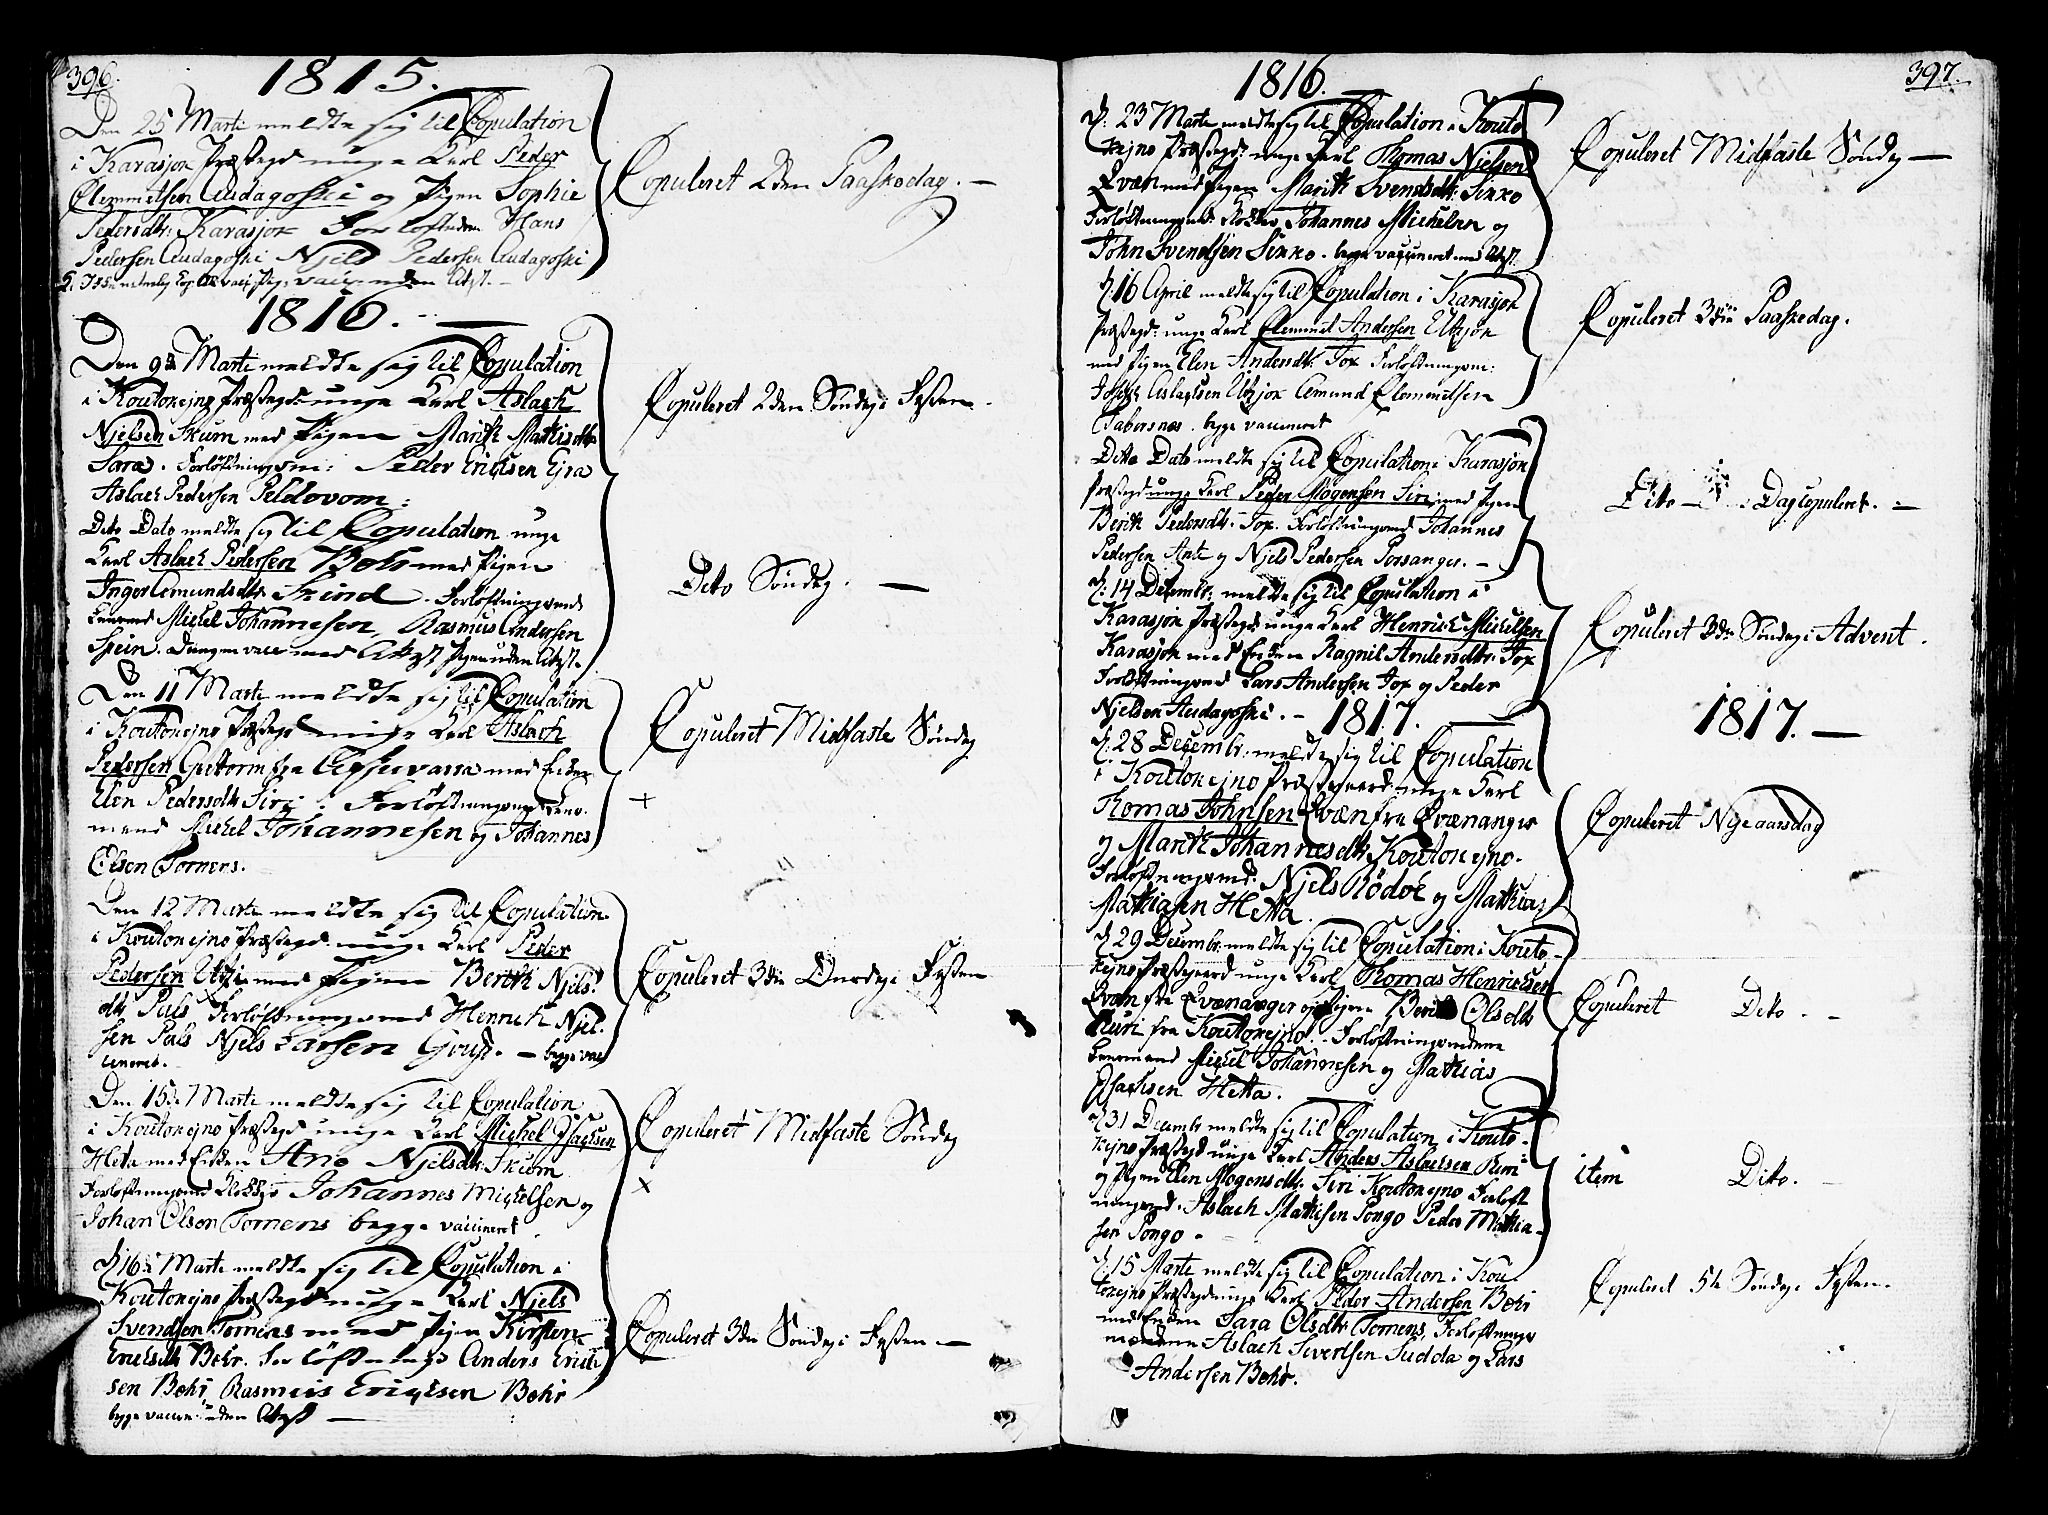 396.
1815.
Den 25 Marti meldte sig til Copulation
i Karasjok Præstegd unge Karl Peder
Clemmetsen Audagoski og Pigen Sophie
Pedersdtr: Karasjok Forlofterne Hans
Pedersen Audagoski Njels Pedersen Audagoski
Copuleret 2den Paaskedag. —
1816. —
Den 9de Marti meldte sig til Copulation
i Koutokejno Præstegd: unge Karl Aslach
Njelsen Skum med Pigen Marith Mathisdtr
Sara. Forlöftningsm: Peder Erichsen Ejra
Aslach Pedersen Peldovom:
Copuleret 2den Söndag i Fasten.
Dito Dato meldte sig til Copulation unge
Karl Aslach Pedersen Bohr med Pigen
Inger Amundsdtr Skind. Forlöftningsmend
Lensmand Michel Johannesen, Rasmus Andersen
Spein. Drengen vacc med Attest Pigen uden Attst.
Dito Söndag. —
Den 11 Marti meldte sig til Copulation
i Koutokejno Præstegd unge Karl Aslach
Pedersen Guttorm fra med Enken
Elen Pedersdtr Siri. Forlöftningsmend Lens-
mand Michel Johannesen og Johannes
Olsen Tornens.
Copuleret Midfaste Söndag
+
Den 12 Marti meldte sig til Copulation
i Koutokejno Præstegd: unge Karl Peder
Pedersen Utzi med Pigen Berith Njels-
dtr Pals Forlöftningsmend Henrich Njel-
sen Pals Njels Larsen Goup. — begge vac
cineret.
Copuleret 3die Onsdag i Fasten
Den 15de Marti meldte sig til Copulation
i Koutokejno Præstegd unge Karl Michel Isachsen
Hetta med Enken Ane Njelsdtr Skum
Forlöftningsmend Klokker Johannes Michelsen og
Johan Olsen Tornens begge vaccineret.
Copuleret Midfaste Söndag
x
D. 16de Marti meldte sig til Copulation i
Koutokejno Præstegd unge Karl Njels
Svendsen Tornens med Pigen Kirsten
Erichsdtr Bohr. Forlöftnings Anders Erich-
sen Bohr Rasmus Erichsen Bohr
begge vaccin: uden Attest —
Copuleret 3die Söndag i Fasten —
397.
1816.
D: 23 Marti meldte sig til Copulation i Kouto
kejno Præstegd: unge Karl Thomas Njelsen
Qvæn med Pigen Marith Svendsdtr: Sikko
Forlöftningsmd: Klokker Johannes Michelsen og
John Svendsen Sikko. begge vaccineret med Attst:
Copuleret Midfaste Söndag —
D. 16 April meldte sig til Copulation i Karasjok
Præstegd: unge Karl Clemmet Andersen Utzjok
med Pigen Elen Andersdtr: Fox Forlöftningsm:
Joseph Aslachsen Utzjok Amund Clemmetsen
Tabersnes. begge vaccineret
Copuleret 3die Paaskedag.
Dito Dato meldte sig til Copulation i Karasjok
Præstegd unge Karl Peder Mogensen Siri med Pigen
Berith Pedersdtr: Fox. Forlöftningsmd Johannes
Pedersen Ante og Njels Pedersen Porsanger. —
Dito — Dag Copuleret. —
D: 14 Decembr: meldte sig til Copulation i
Karasjok Præstegd: unge Karl Henrich Michelsen
Karasjok med Enken Ragnil Andersdtr: Fox
Forlöftningsmd Lars Andersen Fox og Peder
Njelsen Audagoski. —
Copuleret 3die Söndag i Advent.
1817.
1817. —
D: 28 Decembr: meldte sig til Copulation
i Koutokejno Præstegaard: unge Karl
Thomas Johnsen Qvæn fra Qvænanger
og Marith Johannesdtr Koutokejno.
Forlöftningsmd: Njels Rödöe og Mathias
Mathiasen Hetta.
Copuleret Nyeaarsdag
D. 29 Decembr: meldte sig til Copulation i Kouto-
kejno Præstegaard unge Karl Thomas Henrichsen
Qvæn fra Qvænanger og Pigen Berit Olsdtr
Kuri fra Koutokejno. Forlöftningsmendene
Lensmand Michel Johannesen og Mathias
Isachsen Hetta.
Copuleret Dito. —
D. 31 Decembr meldte sig til Copulation i Kouto-
kejno Præstegd unge Karl Anders Aslachsen Kuri
og Pigen Elen Mogensdtr: Siri Koutokejno Forlöft
ningsmd. Aslach Mathisen Pongo Peder Mathia-
sen Pongo. —
item Dito. —
D. 15 Marti meldte sig til Copulation i Kou-
tokejno Præstegd unge Karl Peder Andersen Bohr
med Enken Sara Olsdtr Tornens, Forlöftnings
mendene Aslach Sivertsen Sudda og Lars
Andersen Bohr.
Copuleret 5te Söndag i Fasten.